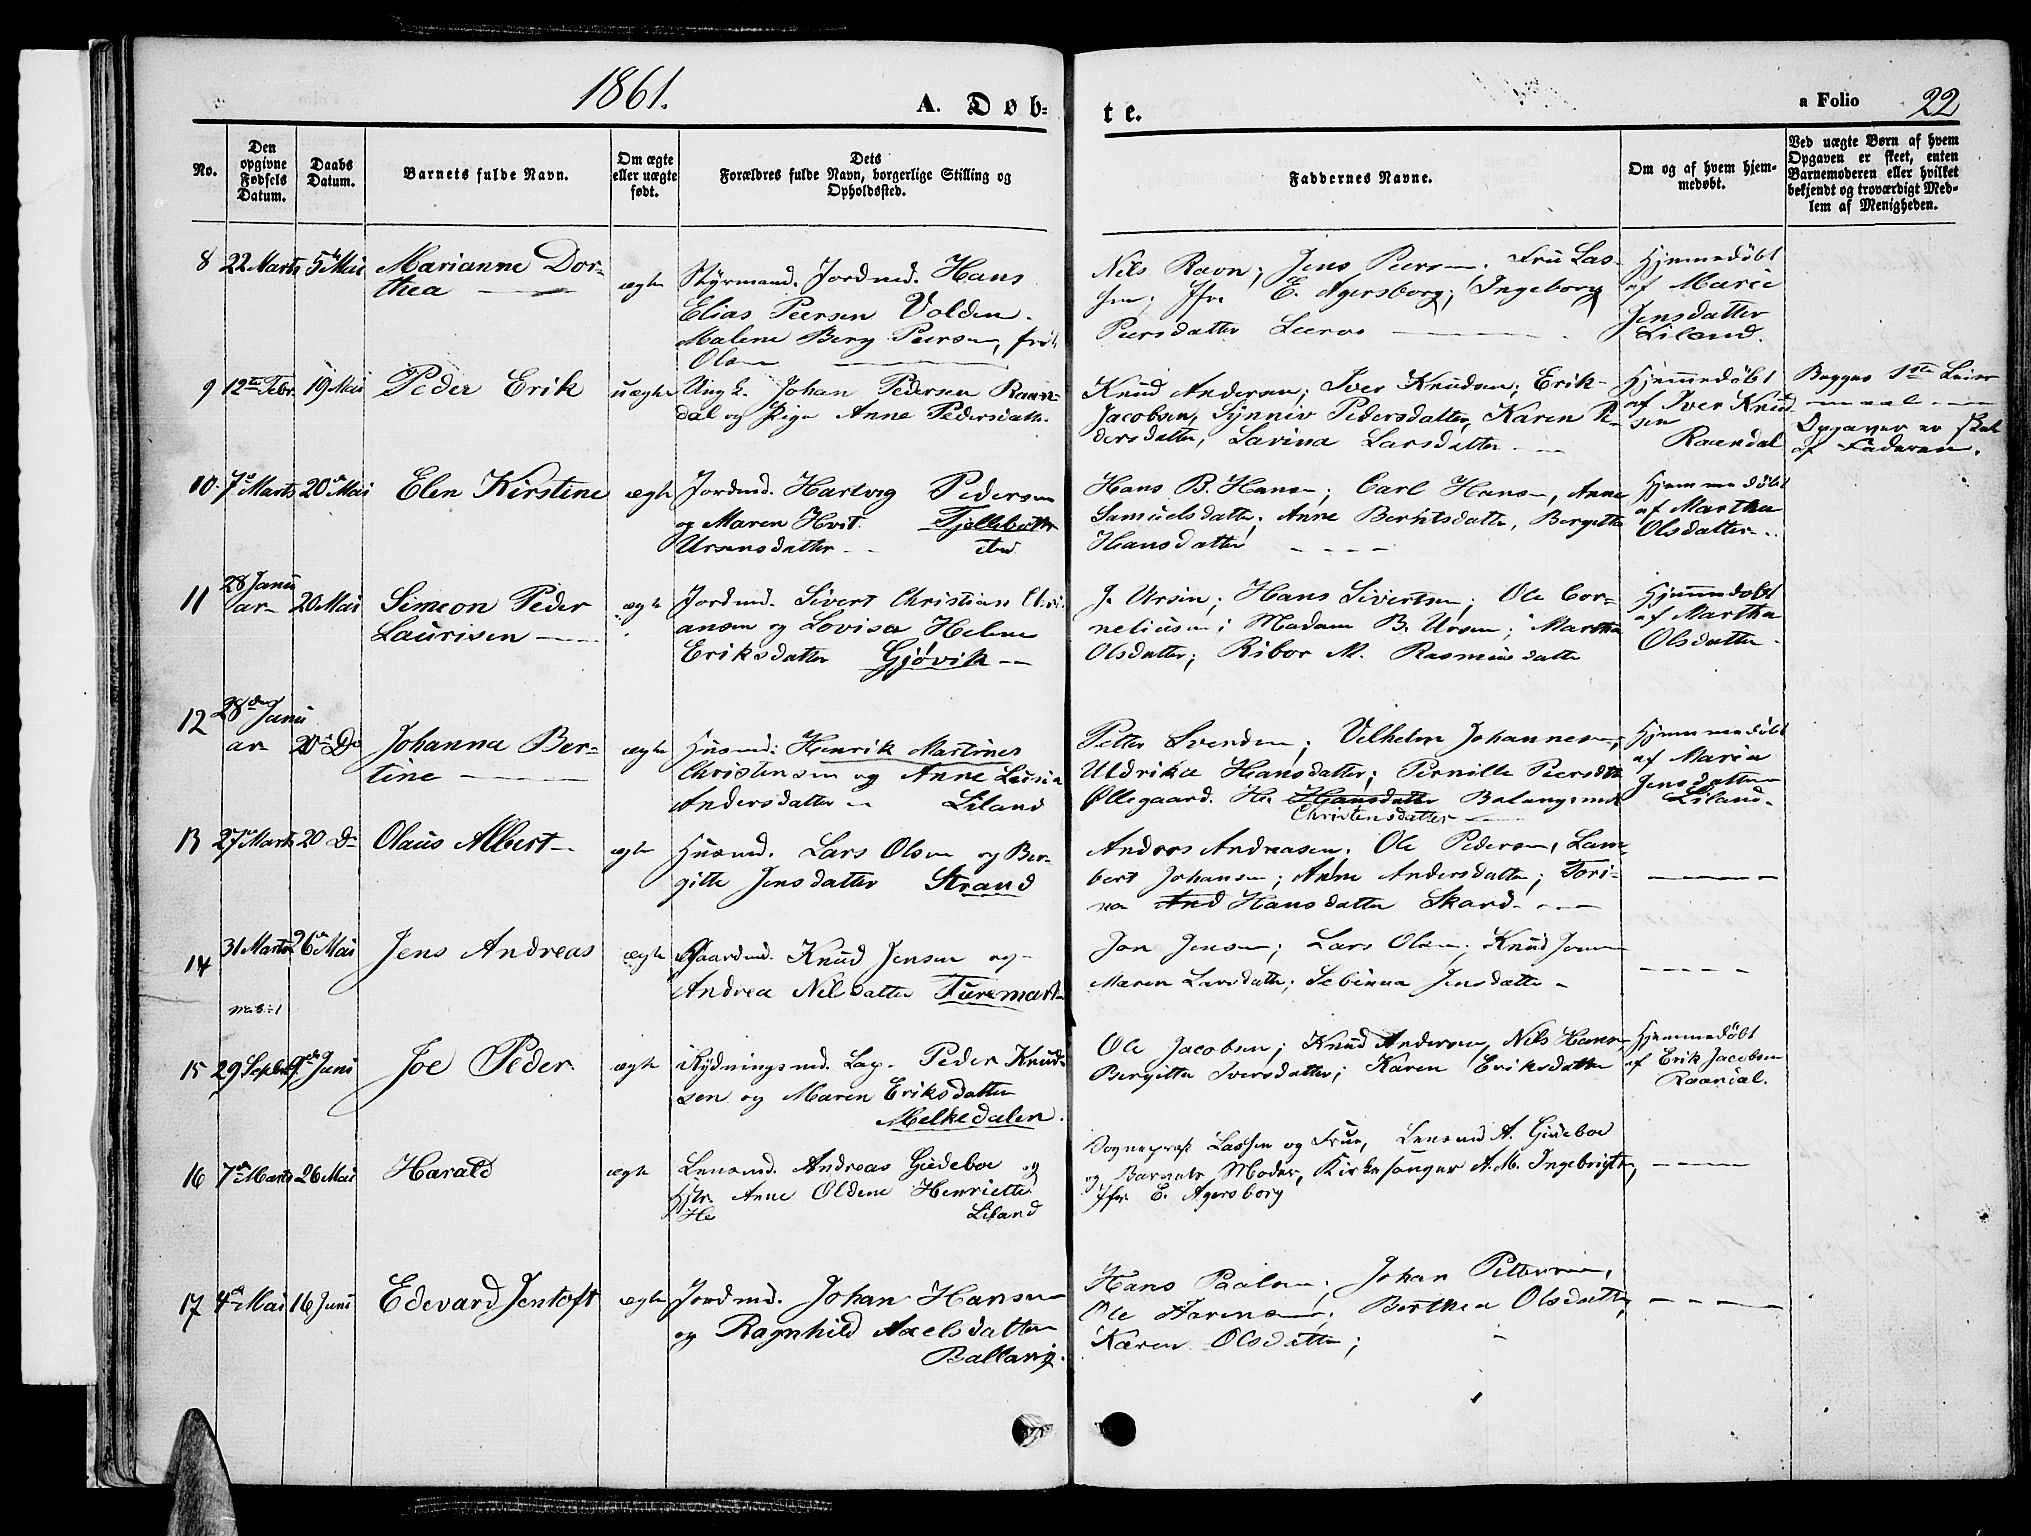 1861.
A. Døb-
te.
a Folio 22
No.
Den
opgivne
Fødsels
Datum.
Daabs
Datum.
Barnets fulde Navn.
Om ægte
eller uægte
født.
Dets
Forældres fulde Navn, borgerlige Stilling og
Opholdssted.
Faddernes Navne.
Om og af hvem hjem-
medøbt.
Ved uægte Børn af hvem
Opgaven er skeet, enten
Barnemoderen eller hvilket
bekjendt og troværdigt Med-
lem af Menigheden.
8 22 Marts 5 Mai Marianne Dor-
thea
ægte
Styrmand. Jordmd. Hans
Elias Peersen Volden.
Malene Berg Peersen, født
Olsen
Nils Ravn; Jens Peersen; Fru Las-
sen; Jfr E. Agersborg; Ingeborg
Peersdatter Leeros
Hjemmedøbt
af Marie
Jensdatter
Liland.
9 12te Febr. 19 Mai Peder Erik uægte
Ungk. Johan Pedersen Raan-
dal og Pige Anne Pedersdatt.
Knud Andersen; Iver Knudsen; Erik
Jacobsen, Synniv Pedersdatter, Karen Pe-
dersdatter, Lavina Larsdatter
Hjemmedøbt
af Iver Knud-
sen
Raandal
Begges 1ste Leier-
maal.
Opgaven er skeet
af Faderen.
10. 7 Marts 20 Mai Elen Kirstine ægte
Jordmd. Hartvig Pedersen
og Maren Hvit Fjellebotten
Ursensdatter
Hans B. Hansen; Carl Hansen, Anne
Samuelsdatter; Anne Berntsdatter, Bergitte
Hansdatter
Hjemmedøbt
af Martha
Olsdatter.
11 28 Janu
ar 20 Mai Simeon Peder
Laurisen ægte
Jordmd. Sivert Christian Christi
ansen og Lovisa Helene
Eriksdatter Gjøvik
J. Ursin; Hans Sivertsen; Ole Cor-
neliusen; Madam B. Ursin; Martha
Olsdatter; Ribor M. Rasmusdatter
Hjemmedøbt
af Martha
Olsdatter
12 28de Janu
ar 20 Do Johanna Ber-
tine ægte
Husmd: Henrik Martines
Christensen og Anne Lusia
Andersdatter Liland
Petter Svendsen; Vilhelm Johannesen,
Uldrika Hansdatter; Pernille Peersdtr
Øllegaard. He. Hansdatter Balangsmrk
Christensdatter
Hjemmedøbt
af Maria
Jensdatter
Liland.
13 27 Marts 20 Do Olaus Albert ægte
Husmd. Lars Olsen og Ber-
gitte Jensdatter Strand
Anders Andreasen, Ole Pedersen, Lam-
bert Johansen; Anne Andersdatter; Tori-
na And Hansdatter Skard
14 31 Marts 26 Mai Jens Andreas ægte
Gaardmd. Knud Jensen og
Andrea Nilsdatter Furemark
Jon Jensen; Lars Olsen; Knud Jensen
Maren Larsdatter; Sebinna Jensdatter
15 29 Septbr 9de Juni Joe Peder ægte
Rydningsmd. Lap. Peder Knud-
sen og Maren Eriksdatter
Melkedalen.
Ole Jacobsen; Knud Andersen, Nils Hansen
Bergitte Iversdatter; Karen Eriksdatter
Hjemmedøbt
af Erik Jacobsen
Raandal.
16 7de Marts 26 Mai Harald ægte
Lensmd. Andreas Giæeboe og
Hstr. Anne Oldine Henriette
He Liland
Sogneprest Lassen og Frue, Lensmd A. Giæeboe
og Barnets Moder, Kirkesanger A. M. Ingebrigtsen,
Jfr. E. Agersborg
17 4de Mai 16 Juni Edevard Jentoft ægte
Jordmd. Johan Hansen
og Ragnhild Axelsdatter
Ballang.
Hans Paalsen; Johan Pettersen,
Ole Arensen; Berthea Olsdatter,
Karen Olsdatter;